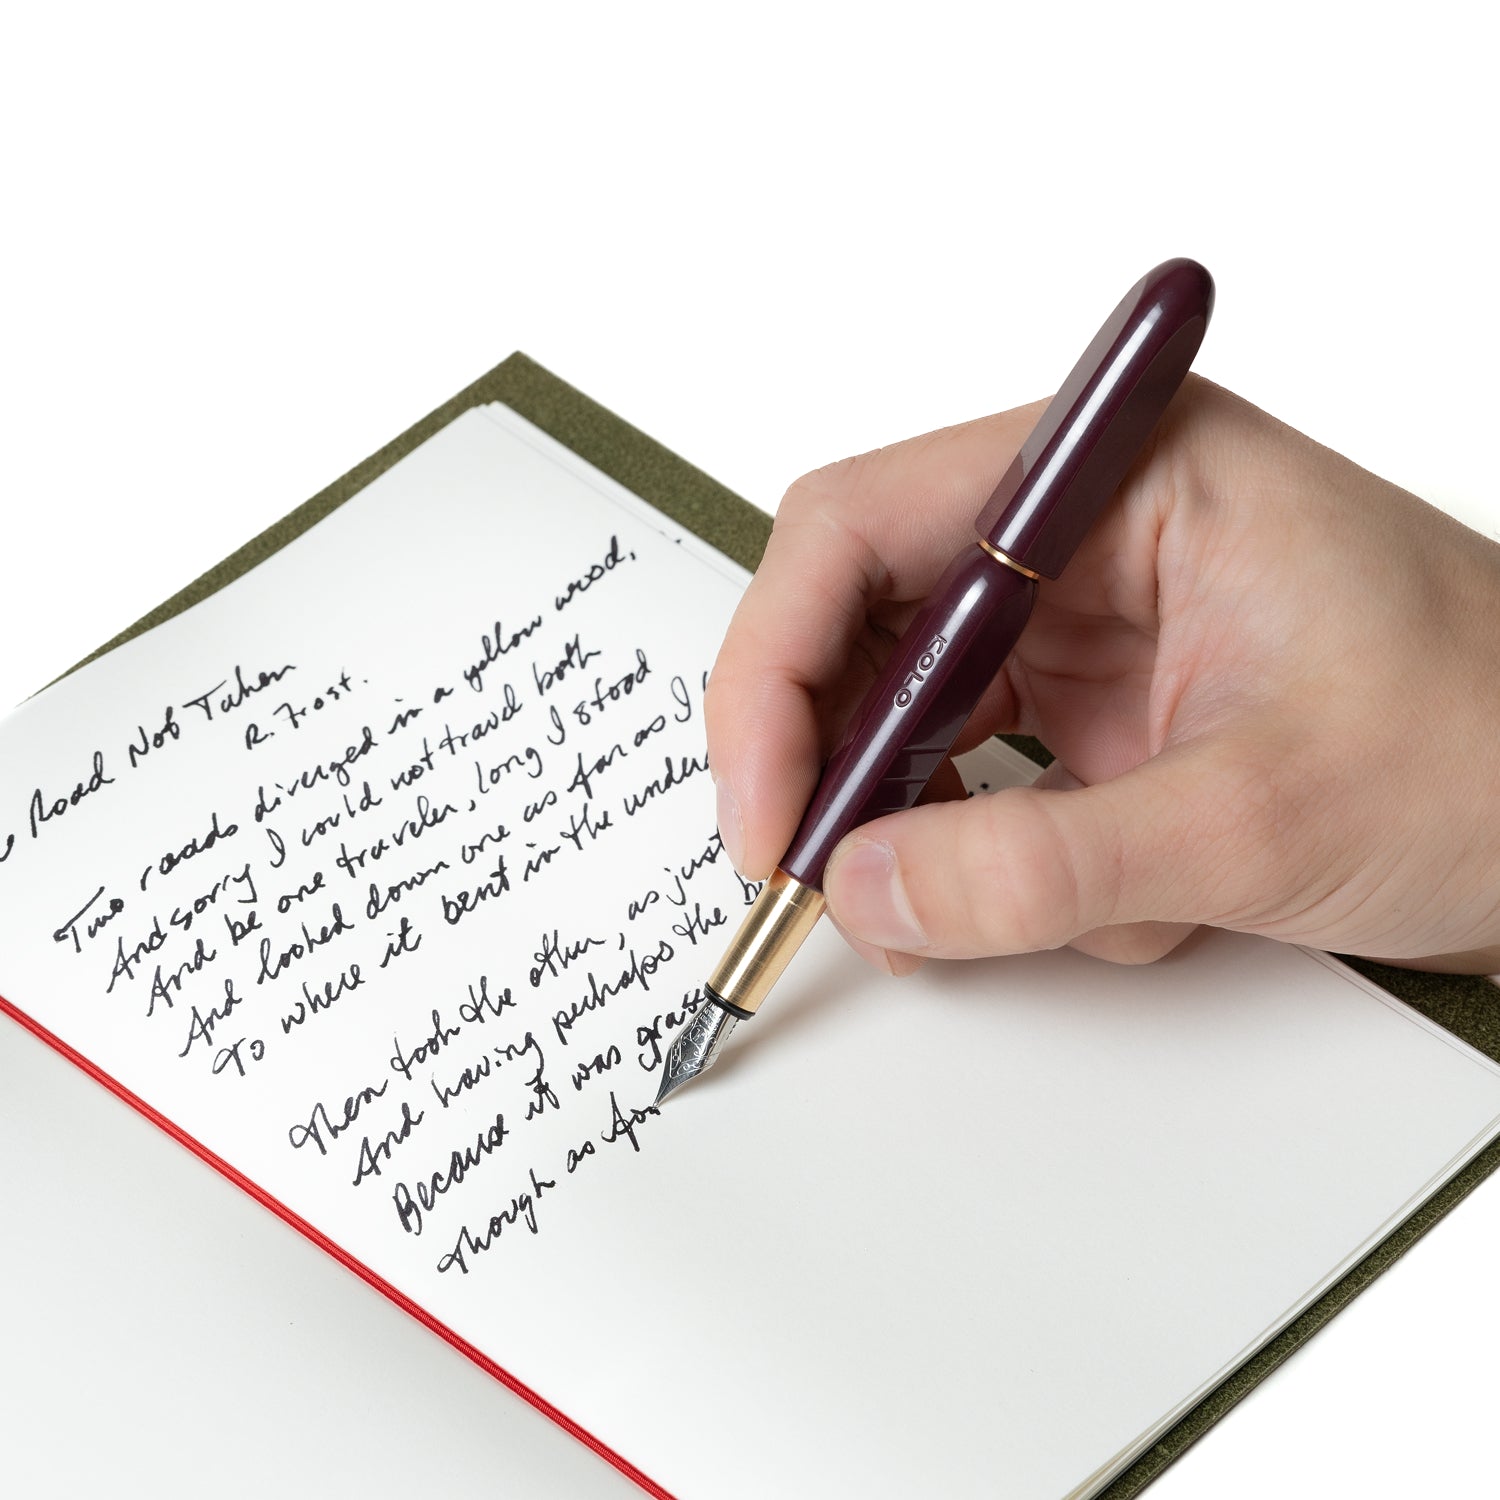 Road Not Taken
R. Frost.
Two roads diverged in a yellow wood,
And sorry I could not travel both
And be one traveler, long I stood
And looked down one as far as I
To where it bent in the under
Then took the other, as just
And having perhaps the b
Because it was grass
Though as for
KOLO